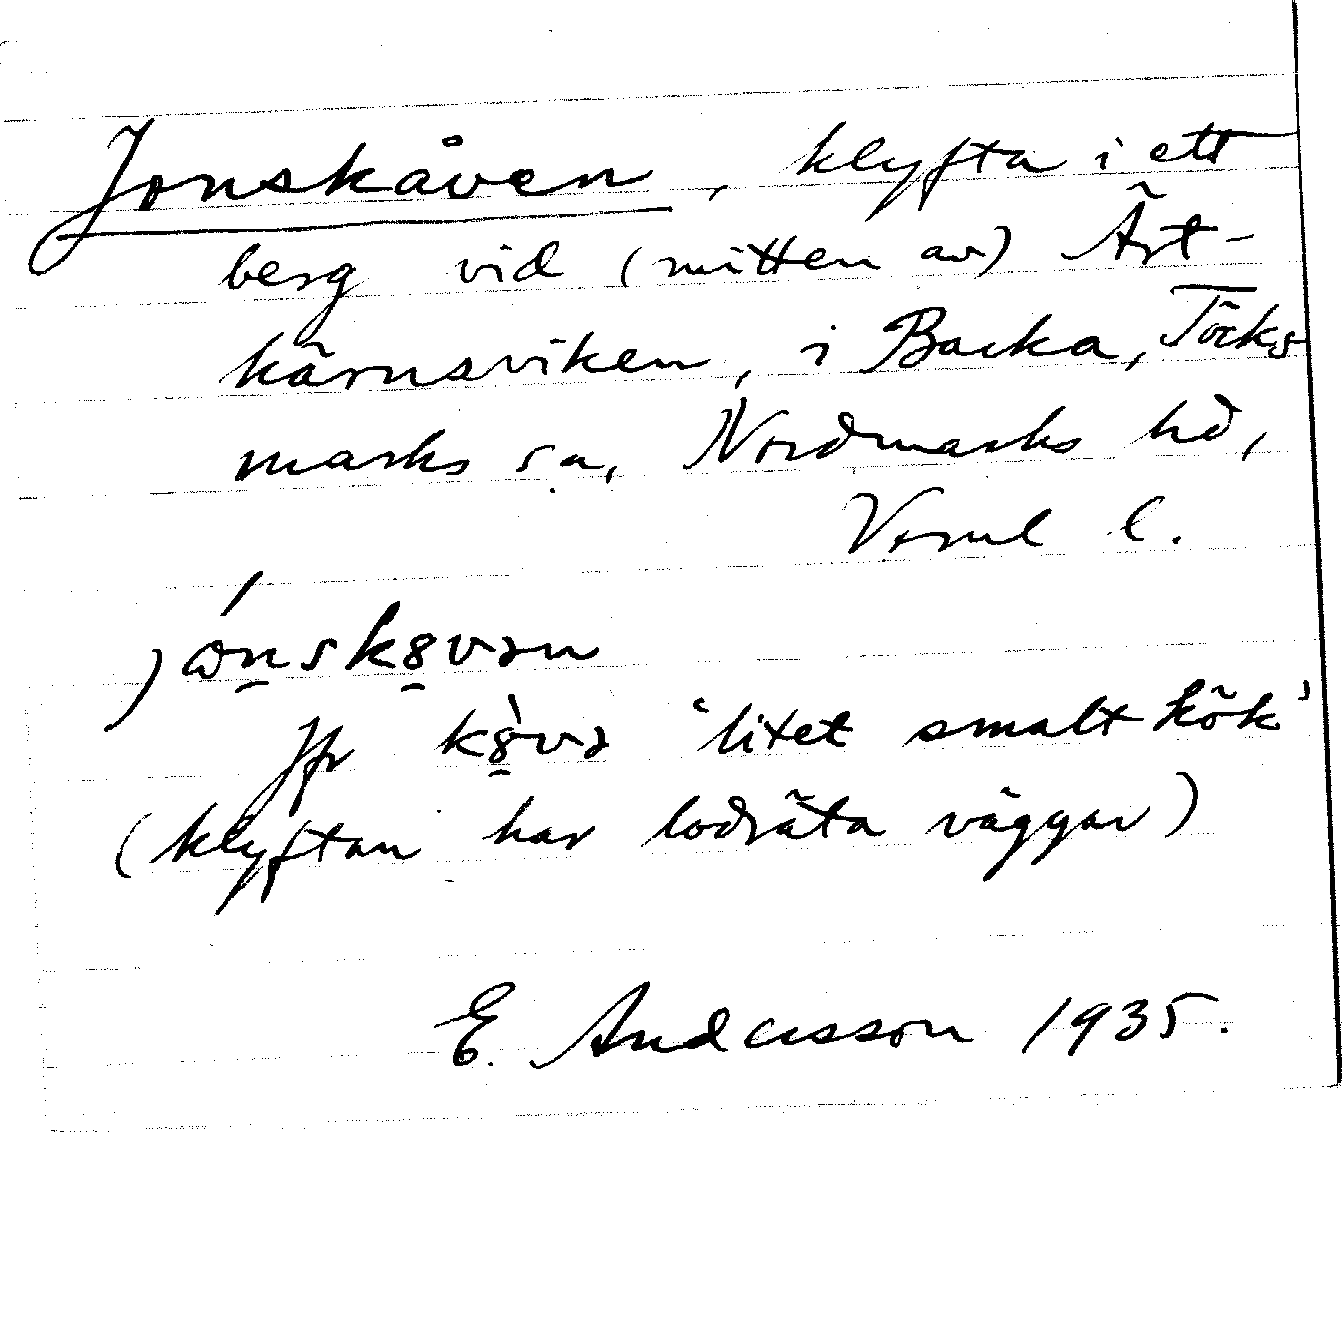 Jonskåven, klyfta i ett
berg vid (mitten av) Ärt-
kärnsviken, i Backa, Töcks
marks sn, Nordmarks hd,
Verml l.
jónsk8vən
Jfr k8̀və 'litet smalt kök'
(klyftan har lodräta väggar)
E. Andersson 1935.